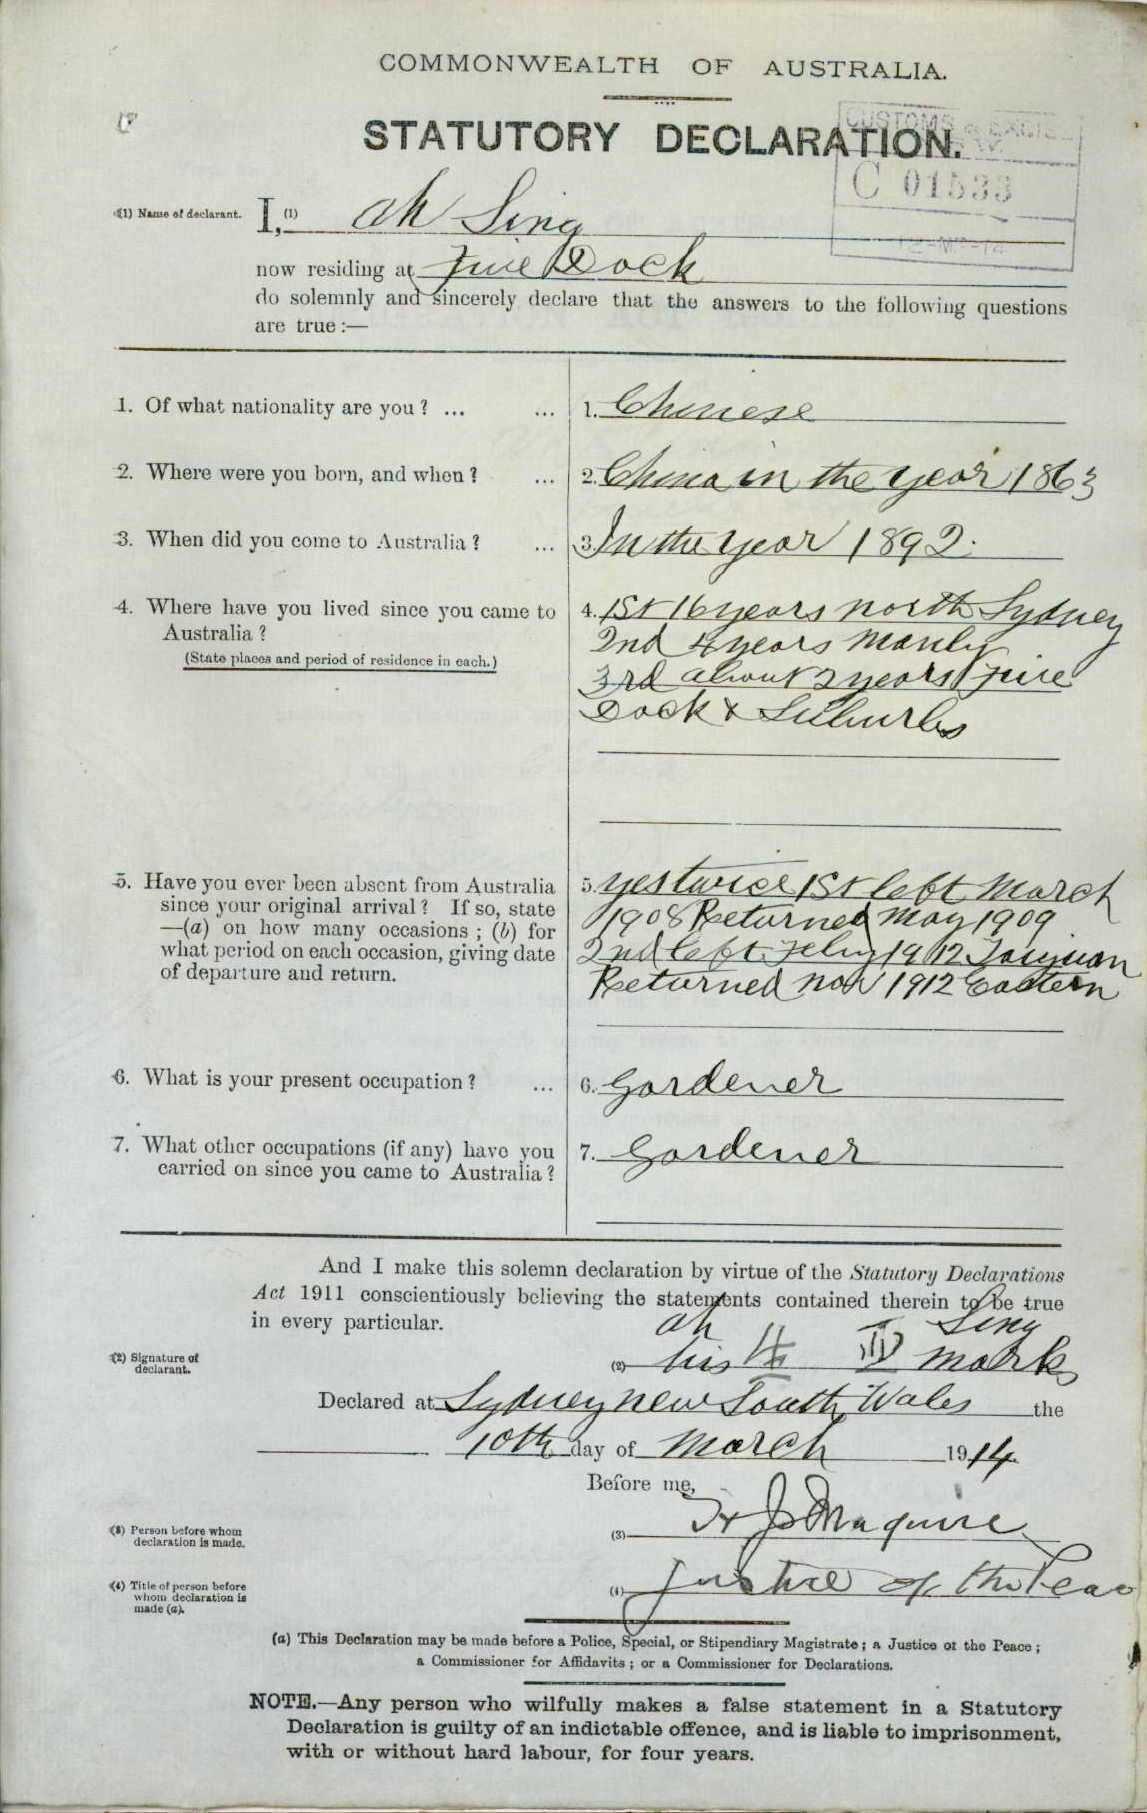 COMMONWEALTH OF AUSTRALIA.
STATUTORY DECLARATION.
CUSTOMS & EXCISE
C 01533
(1) Name of declarant. I, (1) Ah Sing
now residing at Five Dock
do solemnly and sincerely declare that the answers to the following questions
are true :—
1. Of what nationality are you ? ... ... 1. Chinese
2. Where were you born, and when ? ... 2. China in the year 1863
3. When did you come to Australia ? ... 3. In the year 1892.
4. Where have you lived since you came to 4. 1st 16 years north Sydney
Australia ? 2nd 4 years Manly
(State places and period of residence in each.) 3rd about 2 years Five
Dock & Suburbs
5. Have you ever been absent from Australia 5. yes twice 1st left March
since your original arrival ? If so, state 1908 Returned May 1909
—(a) on how many occasions ; (b) for
what period on each occasion, giving date 2nd left Feby 1912 Taiyuan
of departure and return. Returned nov 1912 Eastern
6. What is your present occupation ? ... 6. Gardener
7. What other occupations (if any) have you 7. Gardener
carried on since you came to Australia ?
And I make this solemn declaration by virtue of the Statutory Declarations
Act 1911 conscientiously believing the statements contained therein to be true
in every particular.
Ah Sing
(2) Signature of declarant. (2) his marks
Declared at Sydney new South Wales the
10th day of March 1914.
Before me,
(3) Person before whom declaration is made. (3) H J Maguire
(4) Title of person before whom declaration is made (a). (4) Justice of the Peace
(a) This Declaration may be made before a Police, Special, or Stipendiary Magistrate ; a Justice of the Peace ;
a Commissioner for Affidavits ; or a Commissioner for Declarations.
NOTE.—Any person who wilfully makes a false statement in a Statutory
Declaration is guilty of an indictable offence, and is liable to imprisonment,
with or without hard labour, for four years.